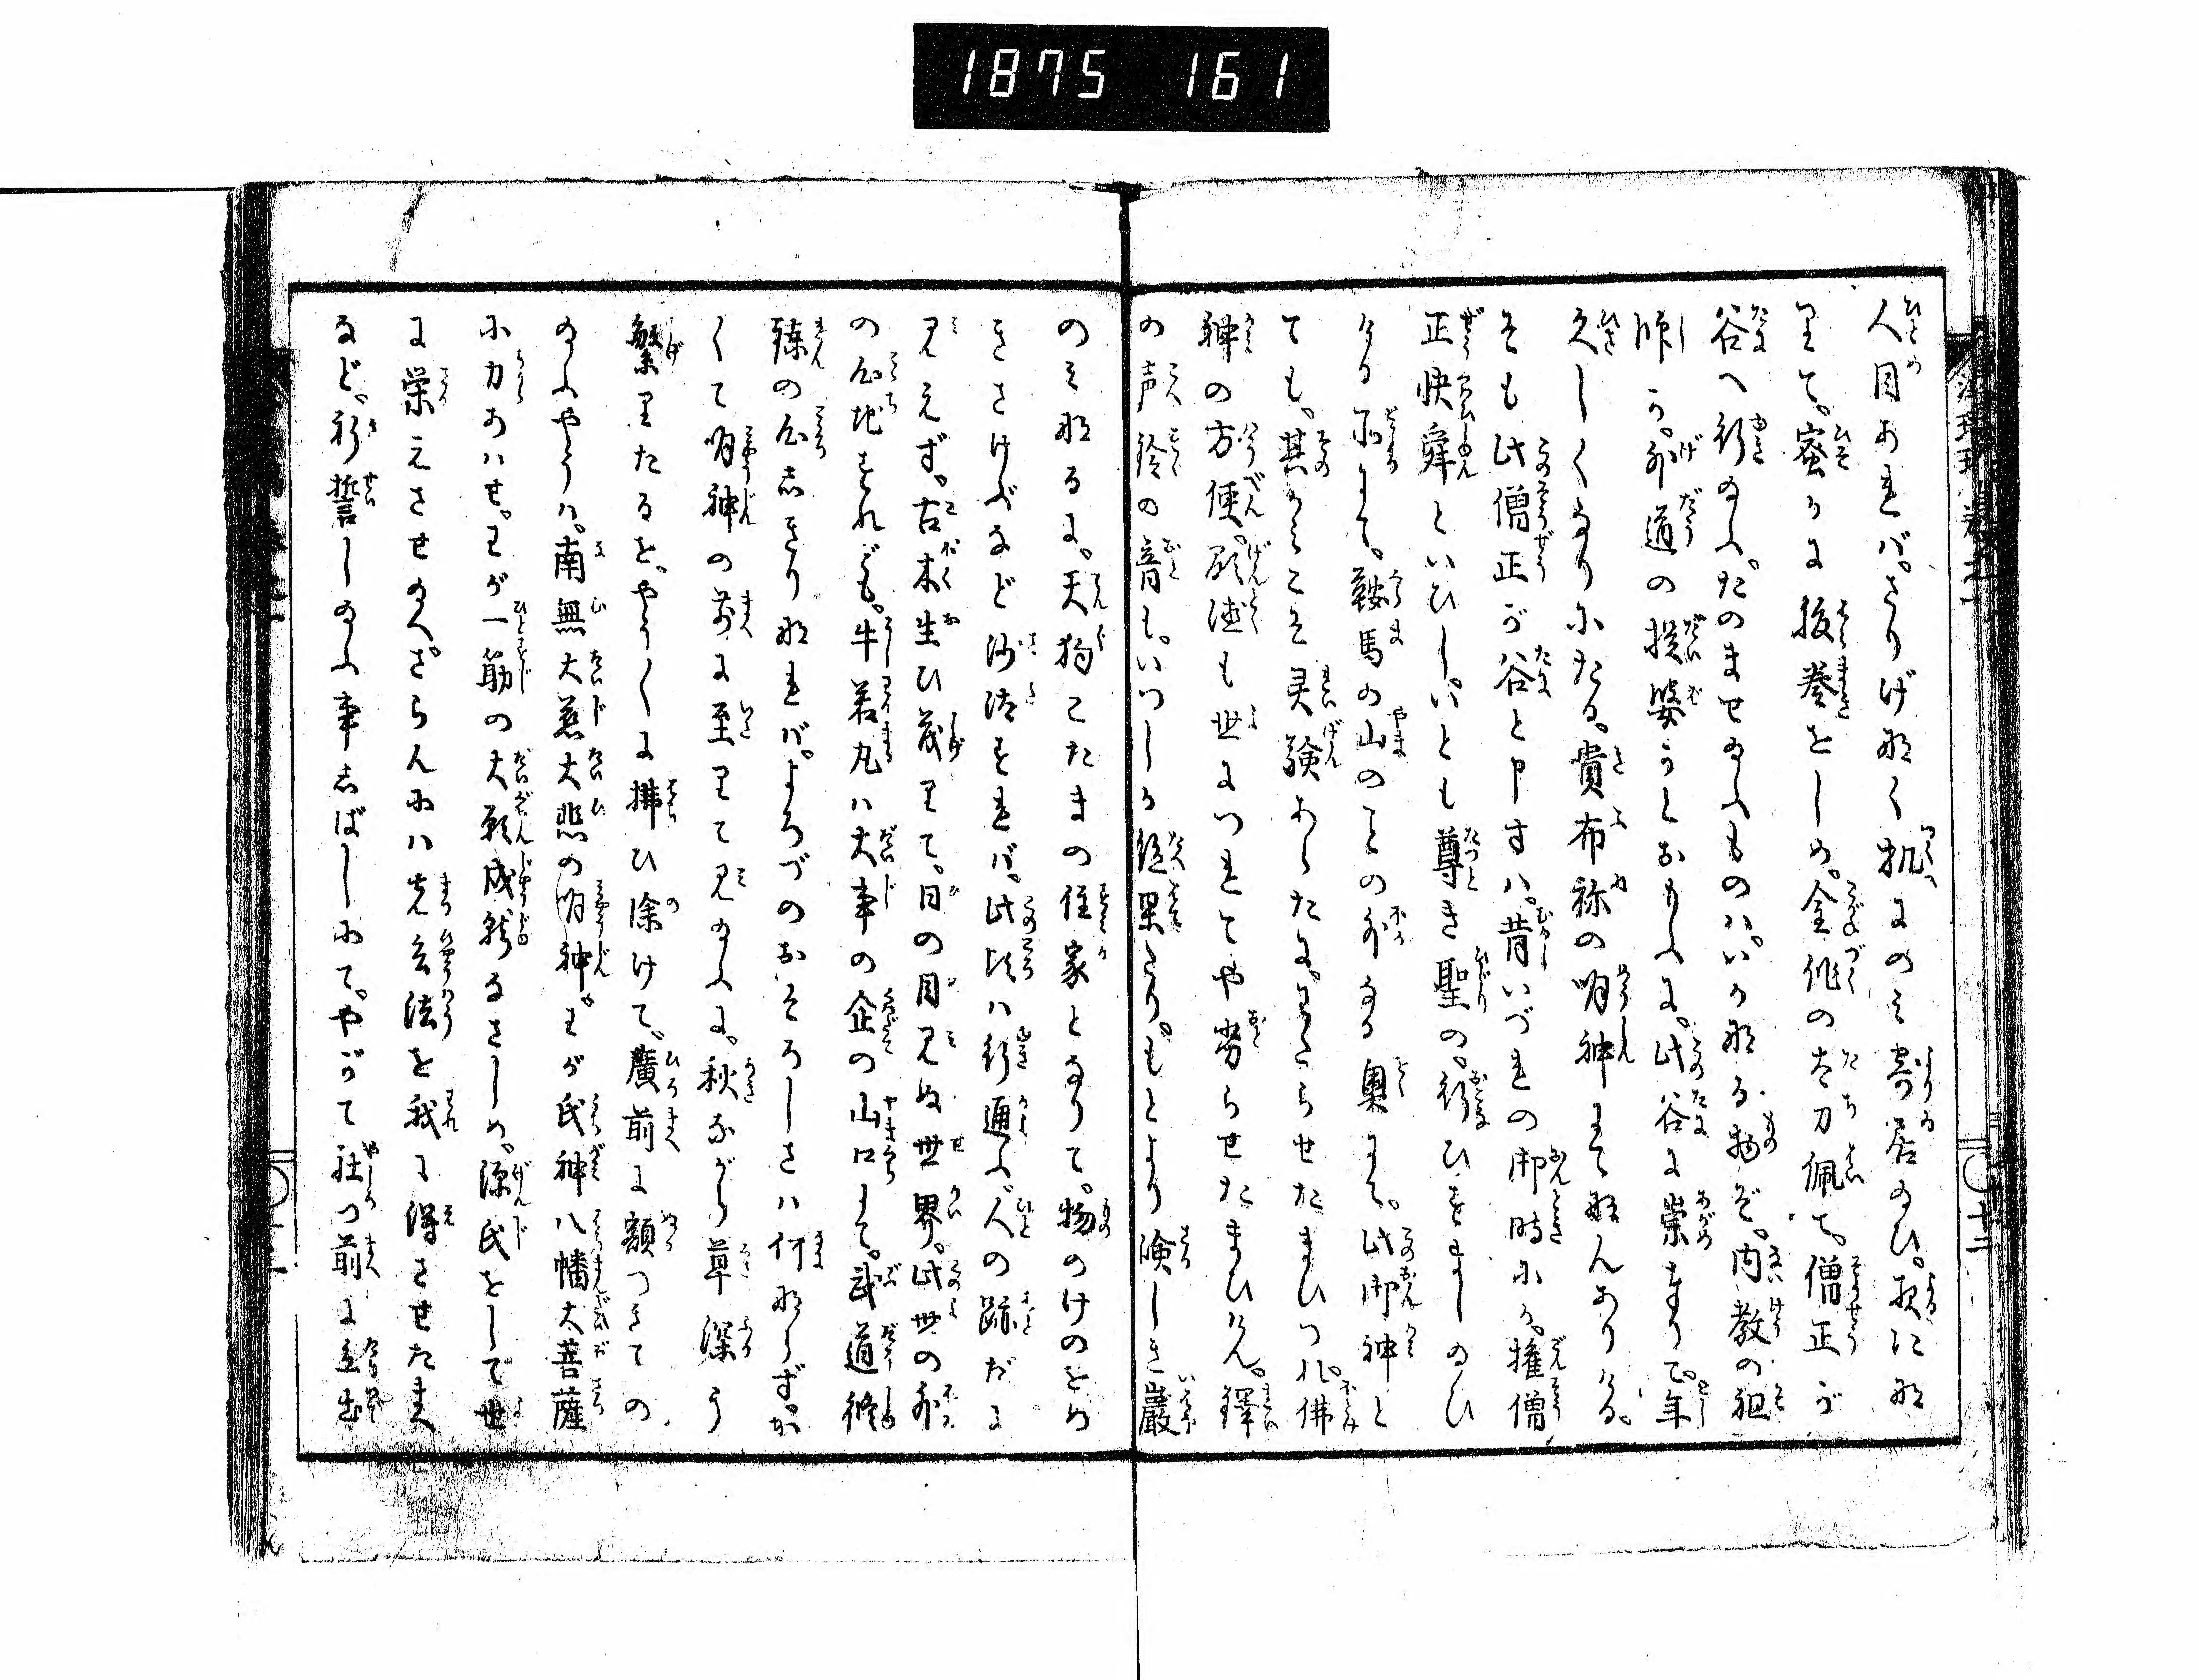 1875 161
人目あれバ。さりげ那く机にのミ寄居のひ。夜に那
里て。密かに後巻をしめ。金作の太刀佩て。僧正が
谷へ行給ふ。たのませ給ふものハ。いか那る物ぞ。内教の祖
師か。外道の提婆かとおもふに。此谷に崇奉りて。年
久しくなりにたる。貴布祢の明神にて那んありける。
そも此僧正が谷と申すハ。昔いづれの御時にか。権僧
正快舜といひし。いとも尊き聖の。行ひをまし給ひ
ける所にて。鞍馬の山のことの外なる奥にて。此御神と
ても。其かミこそ灵験あらたに。わたらせたまひつれ。佛
神の方便。顕徳も世につれてや劣らせたまひけん。鐸
の声鈴の音も。いつしか絶果たり。もとより険しき巌
のミ那るに。天狗こたまの住家となりて。物のけのをめ
きさけぶなど沙汰をれバ。此頃ハ行通ふ人の跡だに
見えず。古木生ひ茂里て。日の目見ぬ世界。此世の外
の心地をれども。牛若丸ハ大事の企の山口にて。武道修
錬の心志きり那れバ。よろづのおそろしさハ何那らず。か
くて明神の前に至里て見給ふに。秋ながら草深う
繁里たるを。やう〱に拂ひ除けて。廣前に額つきての
給ふやうハ。南無大慈大悲の明神。わが氏神八幡大菩薩
に力あハせ。わが一筋の大願成就なさしめ。源氏をして世
に栄えさせ給へ。さらんにハまつ兵法を我に得させたまへ
など。祈誓し給ふ事志ばしにて。やがて社の前に立出